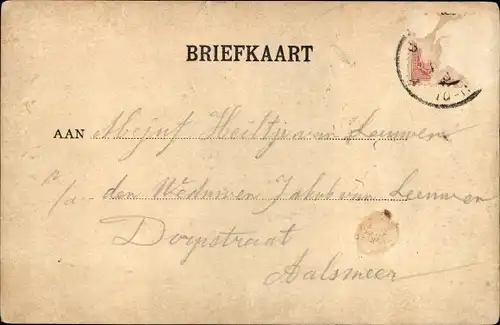 BRIEFKAART
AAN Mejuf Heiltje van Leeuwen
p/a den Weduwen Jakob van Leeuwen
Dorpstraat
Aalsmeer